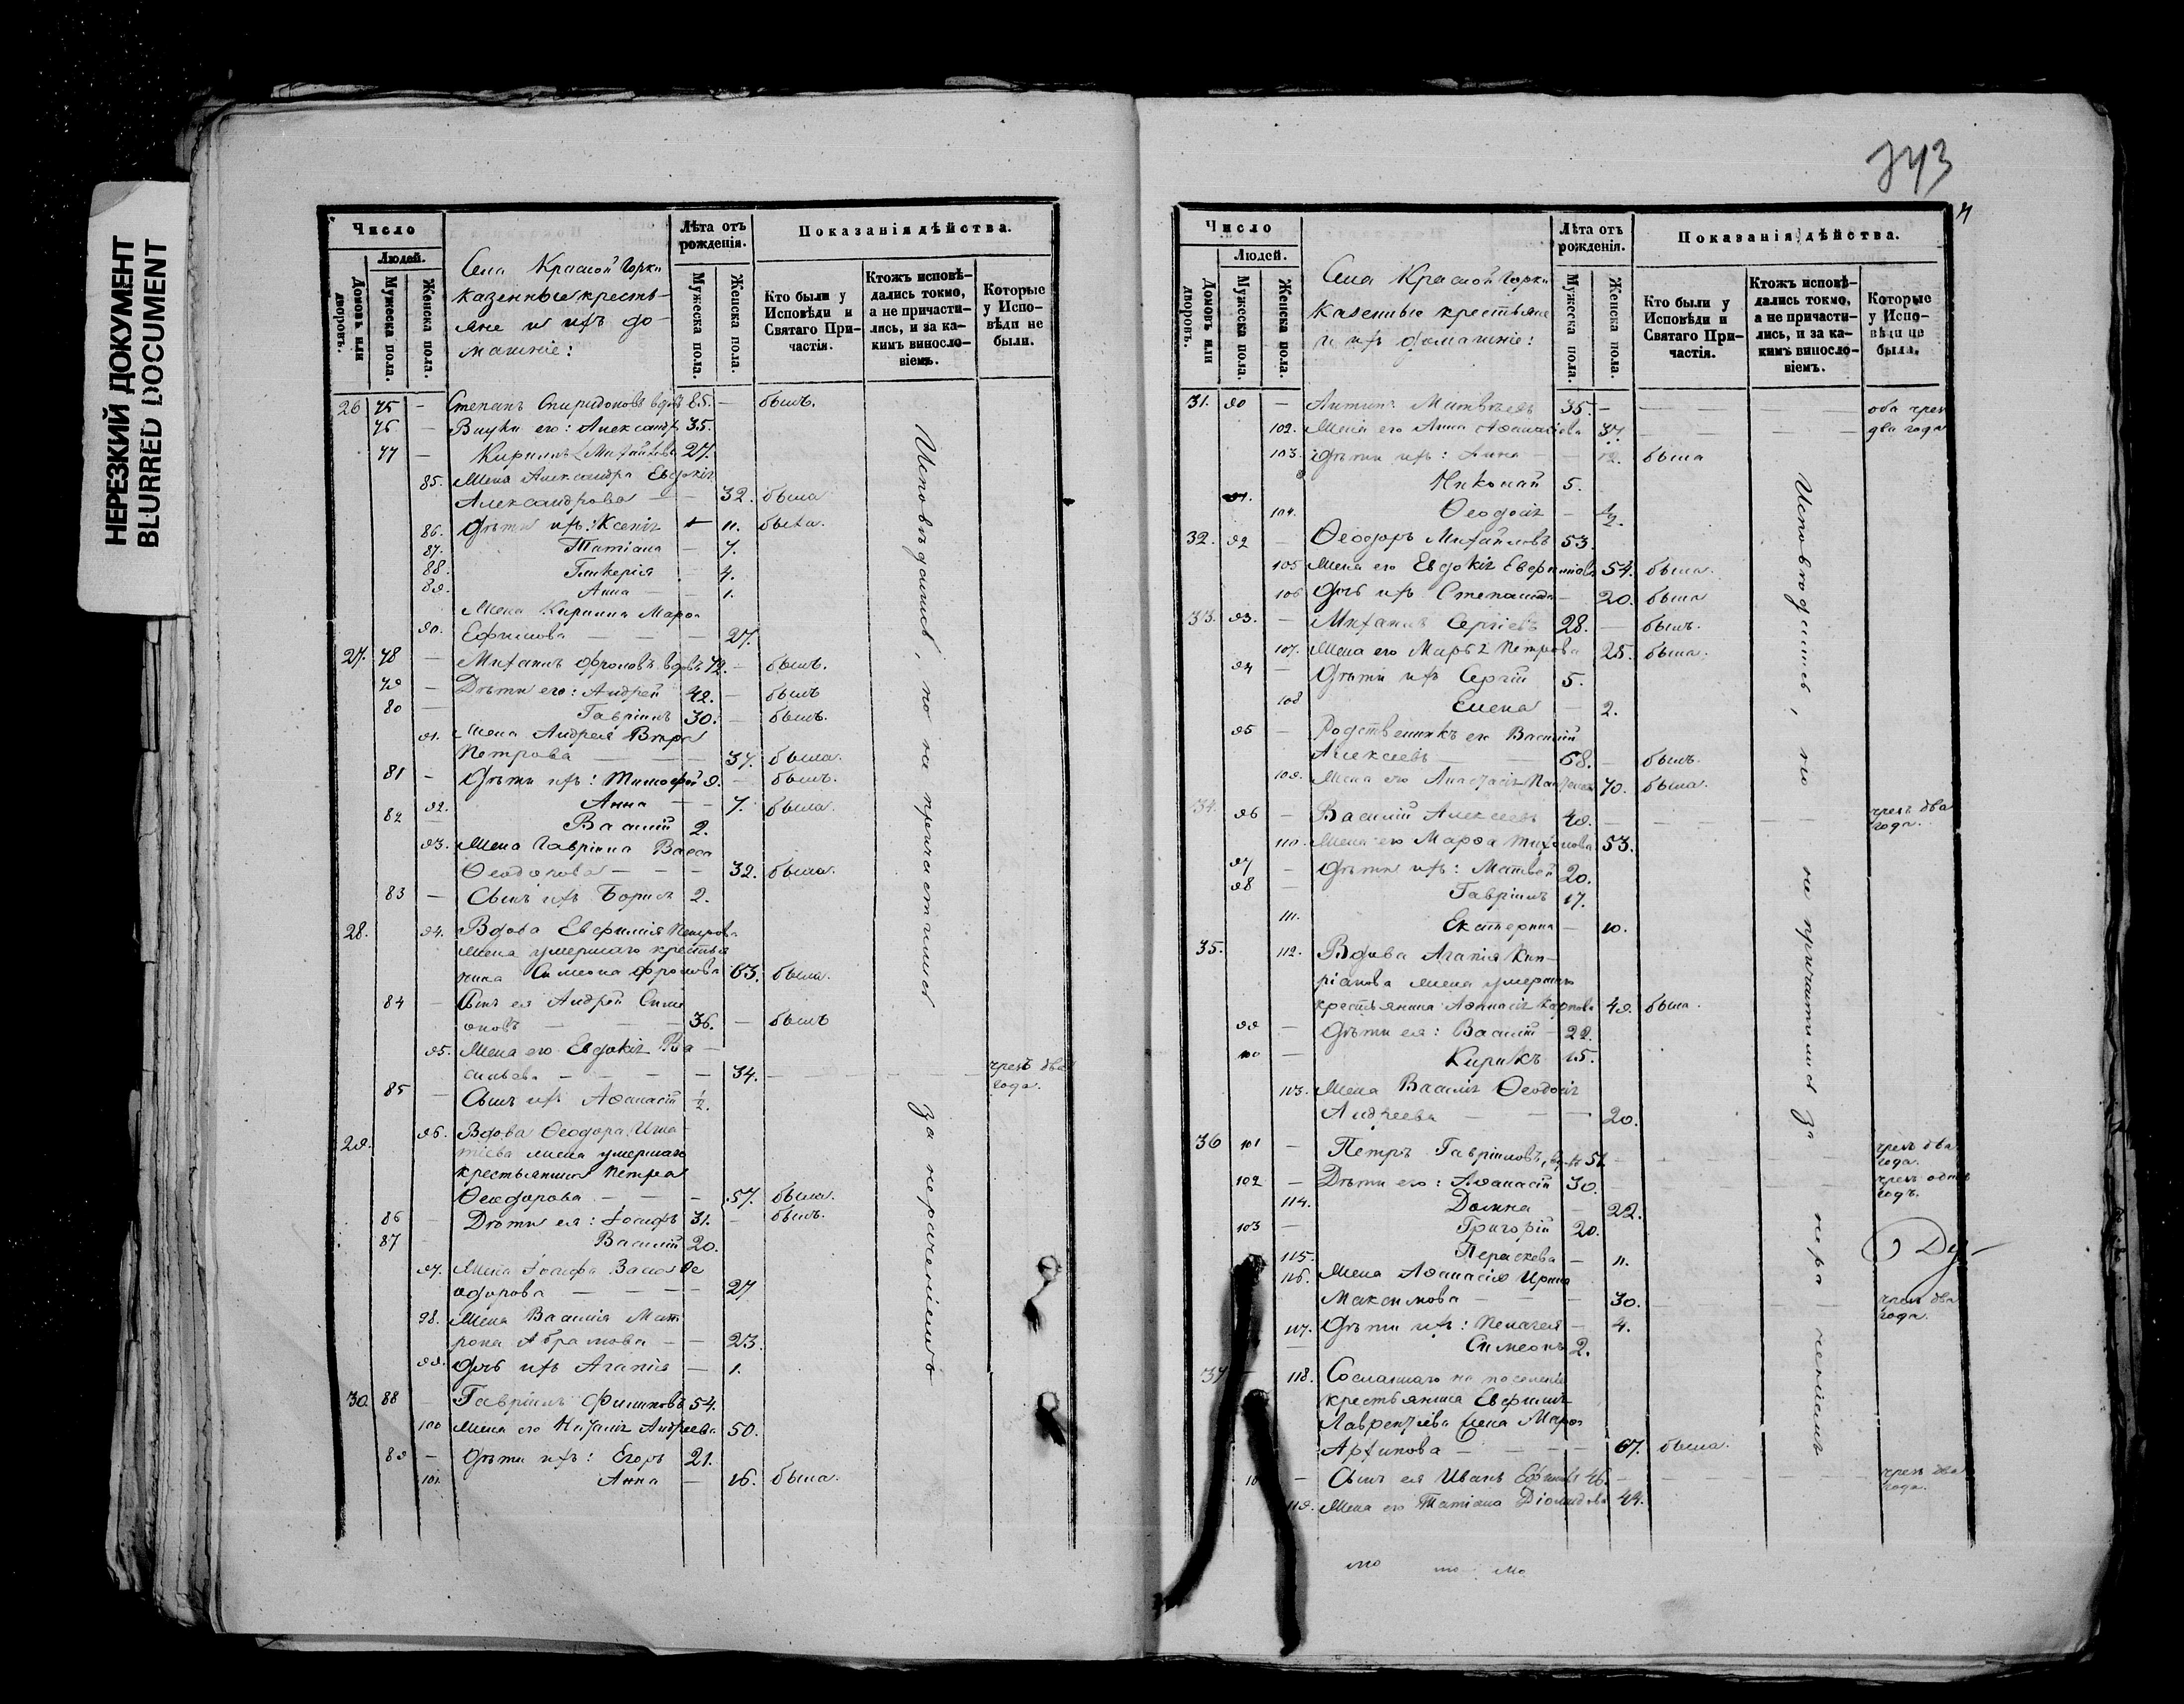 НЕРЕЗКИЙ ДОКУМЕНТ
BLURRED DOCUMENT
Число
Людей.
Домовъ или дворовъ.
Мужеска пола.
Женска пола.
Села Красной Горки
казенные кресть-
яне и ихъ до-
машніе:
Лѣта отъ рожденія.
Мужеска пола.
Женска пола.
Показанія дѣйства.
Кто были у Исповѣди и Святаго При-частія.
Ктожъ исповѣ-дались токмо, а не причасти-лись, и за ка-кимъ винosло-віемъ.
Которые у Испо-вѣди не были.
26 75 — Степанъ Спиридоновъ вдовъ 85. — былъ.
76 — Внуки его: Александръ 35.
77 — Кириллъ Михайловы 27.
85. Жена Александра Евдокія
Александрова — — 32. была
86. Дѣти ихъ: Ксенія — 11. была.
87. Татіана — 7.
88. Гликерія — 4.
89. Анна — 1.
Жена Кирилла Марѳа
90. Ефимова — — — 27.
27. 78 — Михаилъ Фроловъ вдовъ 72. — былъ.
79 — Дѣти его: Андрей 42. — былъ
80 — Гавріилъ 30. — былъ.
91. Жена Андрея Вѣра
Петрова — — — 37. была.
81 — Дѣти ихъ: Тимофей 9. — былъ.
92. Анна — — 7. была.
82 Василій 2.
93. Жена Гавріила Васса
Ѳеодорова — — — 32. была.
83 — Сынъ ихъ Борисъ 2.
28. 94. Вдова Евфимія Петрова
жена умершаго крестья
нина Симеона Фролова 63. была.
84 — Сынъ ея Андрей Симе
оновъ — — — 36. — былъ
95. Жена его Евдокія Ва —
сильева — — — — 34. — — — чрезъ два года.
85 — Сынъ ихъ Аѳанасій ½.
29. 96. Вдова Ѳеодора Игна-
тіева жена умершаго
крестьянина Петра
Ѳеодорова — — — 57. была.
86 — Дѣти ея: Іосифъ 31. — былъ.
87 Василій 20.
97. Жена Іосифа Ѳе
одорова — — — — 27
98. Жена Василія Мат
рона Абрамова — — 23.
99. Дочь ихъ Агапія — 1.
30. 88 — Гавріилъ Филиповъ 54.
100 Жена его Андреева 50.
89 — Дѣти ихъ: Егоръ 21.
101. Анна — 16. была.
Исповѣдались, но не причастились за нераченіемъ
343
Число
Людей.
Домовъ или дворовъ.
Мужеска пола.
Женска пола.
Села Красной Горки
казенные крестьяне
и ихъ домашніе:
Лѣта отъ рожденія.
Мужеска пола.
Женска пола.
Показанія дѣйства.
Кто были у Исповѣди и Святаго При-частія.
Ктожъ исповѣ-дались токмо, а не причасти-лись, и за ка-кимъ винosло-віемъ.
Которые у Испо-вѣди не были.
31. 90 — Антипъ Матвѣевъ 35. — — — — оба чрезъ
102. Жена его Анна Аѳанасіева 37. — — — два года
103. Дѣти ихъ: Анна — — 12. была
91. Николай 5.
104. Ѳеодосія — ½.
32. 92 — Ѳеодоръ Михайловъ 53.
105 Жена его Евдокія Евфимова 54. была.
106 Дочь ихъ Степанида — 20. была
33. 93. — Михаилъ Сергіевъ 28. — былъ.
107. Жена его Марья Петрова 25. была.
94 — Дѣти ихъ Сергій 5.
108 Елена — 2.
95 — Родственникъ его Василій
Алексіевъ — — 68. — былъ.
109. Жена его Анастасія 70. была.
34. 96 — Василій Алексіевъ 49. — — — — чрезъ два года.
110. Жена его Марѳа Тихонова 53.
97 — Дѣти ихъ: Матвѣй 20.
98 — Гавріилъ 17.
111. Екатерина — 10.
35. 112. Вдова Агапія Кип-
ріанова жена умершаго
крестьянина Аѳанасія Карпова 49. была.
99 — Дѣти ея: Василій — 22.
100 — Кирикъ 15.
113. Жена Василія Ѳеодосія
Андреева — — — 20.
36 101 — Петръ Гавріиловъ, вдовъ 51. — — — — чрезъ два года.
102 — Дѣти его: Аѳанасій 30. — — — чрезъ одинъ годъ.
114. Домна — 22.
103 — Григорій 20.
115. Параскева — 11.
116. Жена Аѳанасія Ирина
Максимова — — — 30. — — — чрезъ два года.
117. Дѣти ихъ: Пелагея — 4.
— Симеонъ 2.
37 — 118. Сосланнаго на поселеніе
крестьянина Евфима
Лаврентіева жена Марѳа
Архипова — — — — 67. была.
10 — Сынъ ея Иванъ Ефимовъ 46. — — — — чрезъ два года.
119. Жена его Татіана Діомидова 44.
Исповѣдались, но не причастились за нераченіемъ